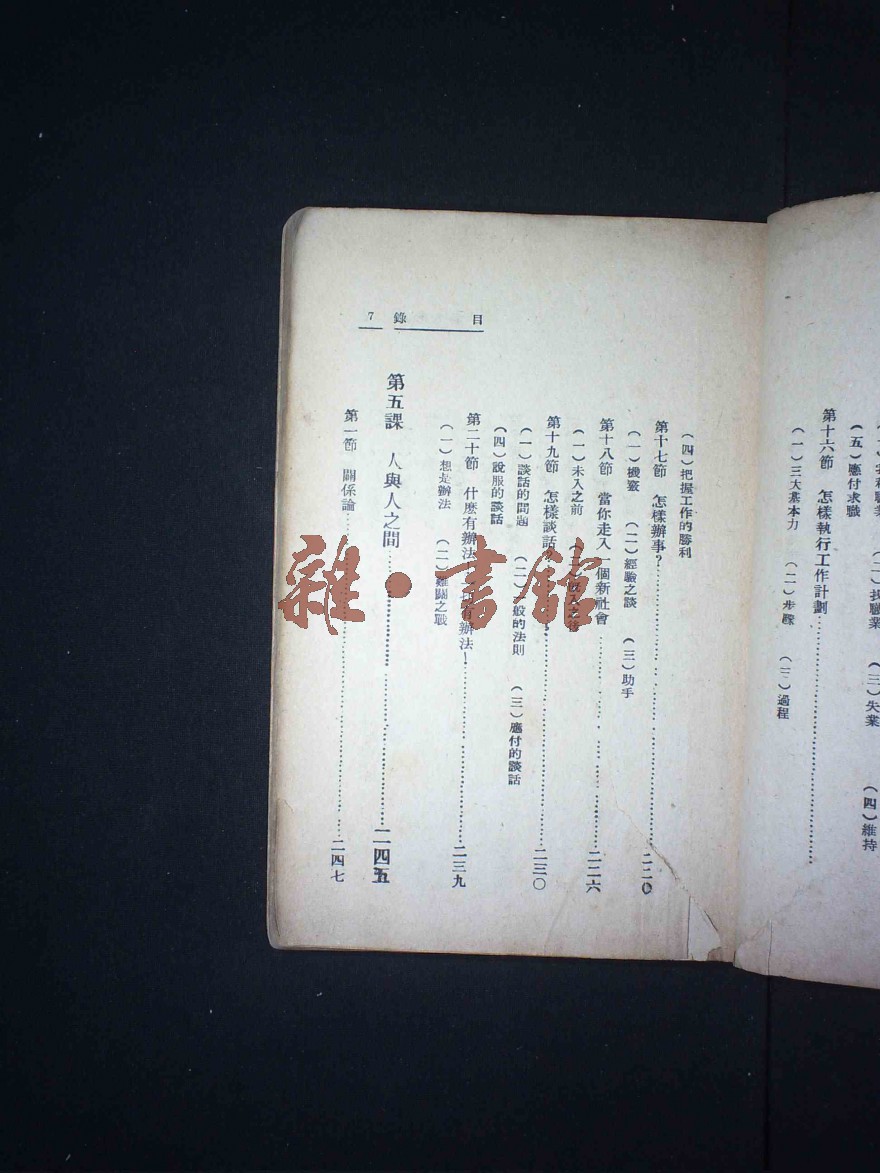 （五）應付求職
（三）失業
（四）維持
第十六節　怎樣執行工作計劃
（一）三大基本力　（二）步驟　（三）過程
目錄　7
（四）把握工作的勝利
第十七節　怎樣辦事？　二二〇
（一）機竅　（二）經驗之談　（三）助手
第十八節　當你走入一個新社會　二二六
（一）未入之前
第十九節　怎樣談話？　二三〇
（一）談話的問題　（二）一般的法則　（三）應付的談話
（四）說服的談話
第二十節　什麽有辦法　有辦法！　二三九
（一）想是辦法　（二）難關之戰
第五課　人與人之間　二四五
第一節　關係論　二四七
雜·書館